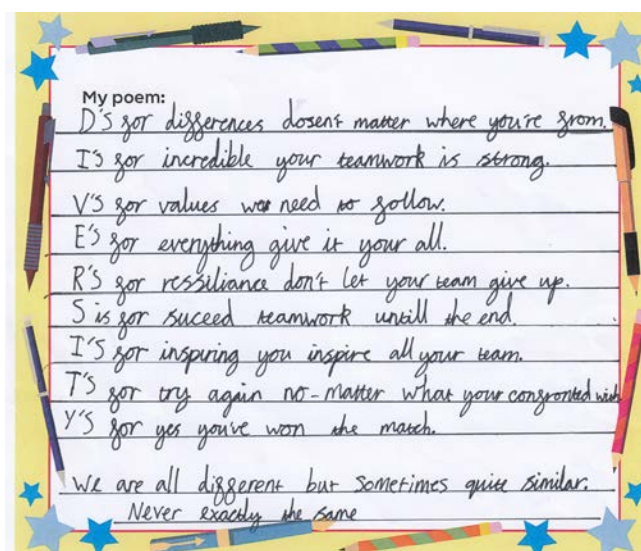 My poem:
D'S for differences dosen't matter where you're from.
I'S for incredible your teamwork is strong.
V'S for values we need to follow.
E'S for everything give it your all.
R'S for ressiliance don't let your team give up.
S is for succeed teamwork untill the end.
I'S for inspiring you inspire all your team.
T'S for try again no-matter what your confronted with
Y'S for yes you've won the match.
We are all different but sometimes quite similar.
Never exactly the same